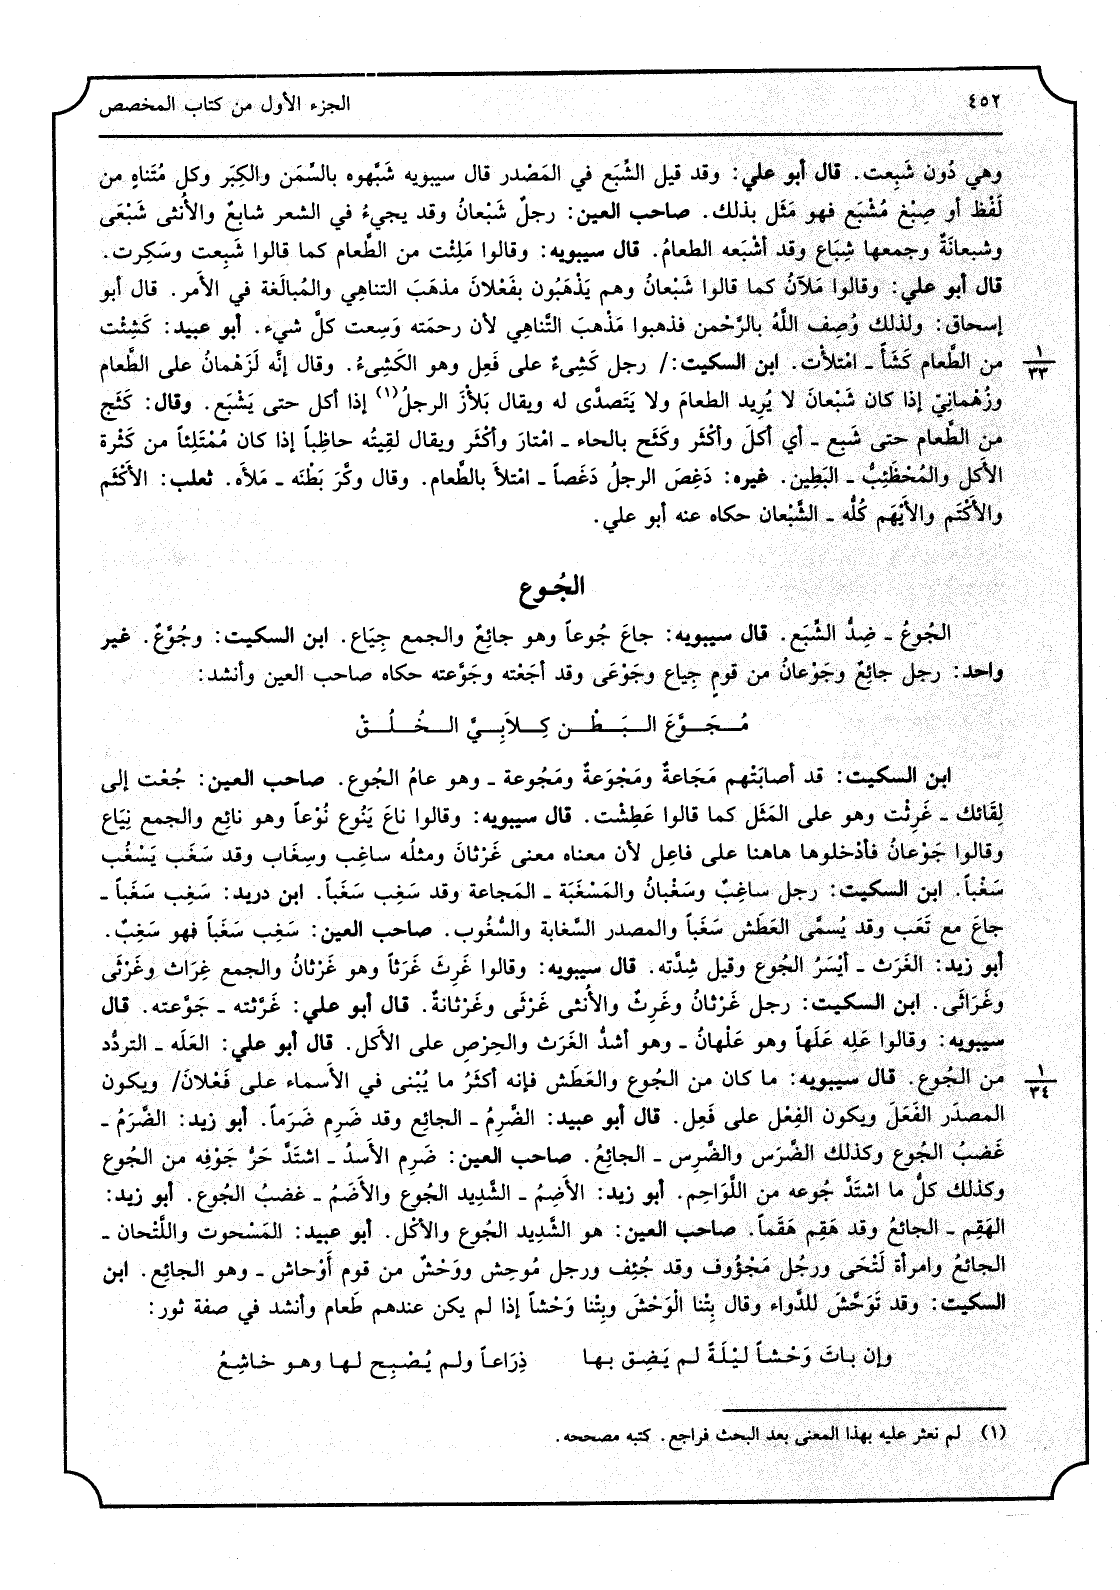 ٤٥٢
الجزء الأول من كتاب المخصص
وهي دُون شَبِعت. قال أبو علي: وقد قيل الشِّبَع في المَصْدر قال سيبويه شَبَّهوه بالسِّمَن والكِبَر وكل مُتَناهٍ من
لَفْظ أو صِبْغ مُشْبَع فهو مَثَل بذلك. صاحب العين: رجلٌ شَبْعانُ وقد يجيءُ في الشعر شابِعٌ والأُنثى شَبْعَى
وشبعانَةٌ وجمعها شِبَاع وقد أشْبَعه الطعامُ. قال سيبويه: وقالوا مَلِئْت من الطَّعام كما قالوا شَبِعت وسَكِرت.
قال أبو علي: وقالوا مَلآنُ كما قالوا شَبْعانُ وهم يَذْهَبُون بفَعْلانَ مذهَبَ التناهِي والمُبالَغة في الأمر. قال أبو
إسحاق: ولذلك وُصِف اللَّهُ بالرَّحْمن فذهبوا مَذْهبَ التَّناهِي لأن رحمَته وَسِعت كلَّ شيء. أبو عبيد: كَشِئْت
من الطَّعام كَشَأً ـ امْتلأْت. ابن السكيت:/ رجل كَشِىءٌ على فَعِل وهو الكَشِىءُ. وقال إنَّه لَزَهْمانُ على الطَّعام
١
٣٣
وزُهْمانِيّ إذا كان شَبْعانَ لا يُرِيد الطعامَ ولا يَتَصدَّى له ويقال بَلأَزَ الرجلُ(١) إذا أكل حتى يَشْبَع. وقال: كَثَج
من الطَّعام حتى شَبع ـ أي أكلَ وأكْثَر وكَثَح بالحاء ـ امْتارَ وأكْثَر ويقال لقِيتُه حاظِباً إذا كان مُمْتَلِئاً من كَثْرة
الأَكل والمُحْظَئِبُّ ـ البَطِين. غيره: دَغِصَ الرجلُ دَغَصاً ـ امْتلأ بالطَّعام. وقال وكَّرَ بَطْنَه ـ مَلأَه. ثعلب: الأَكْثَم
والأَكْتَم والأَيْهَم كُلُّه ـ الشَّبْعان حكاه عنه أبو علي.
الجُوع
الجُوعُ ـ ضِدُّ الشِّبَع. قال سيبويه: جاعَ جُوعاً وهو جائِعٌ والجمع جِيَاع. ابن السكيت: وجُوَّعٌ. غير
واحد: رجل جائِعٌ وجَوْعانُ من قومٍ جِياع وجَوْعَى وقد أجَعْته وجَوَّعته حكاه صاحب العين وأنشد:
مُـجَـوَّعَ الـبَـطْـنِ كِـلاَبِـيَّ الـخُـلُـقْ
ابن السكيت: قد أصابَتْهم مَجَاعةٌ ومَجْوَعةٌ ومَجُوعة ـ وهو عامُ الجُوع. صاحب العين: جُعْت إلى
لِقَائك ـ غَرِثْت وهو على المَثَل كما قالوا عَطِشْت. قال سيبويه: وقالوا ناعَ يَنُوع نُوْعاً وهو نائِع والجمع نِيَاع
وقالوا جَوْعانُ فأدْخلوها هاهنا على فاعِل لأن معناه معنى غَرْثانَ ومثلُه ساغِب وسِغَاب وقد سَغَب يَسْغُب
سَغْباً. ابن السكيت: رجل ساغِبٌ وسَغْبانُ والمَسْغَبَة ـ المَجاعة وقد سَغِب سَغَباً. ابن دريد: سَغِب سَغَباً ـ
جاعَ مع تَعَب وقد يُسمَّى العَطَش سَغَباً والمصدر السَّغابة والسُّغُوب. صاحب العين: سَغِب سَغَباً فهو سَغِبٌ.
أبو زيد: الغَرَث ـ أيْسَرُ الجُوع وقيل شِدَّته. قال سيبويه: وقالوا غَرِثَ غَرَثاً وهو غَرْثانُ والجمع غِرَاث وغَرْثَى
وغَرَاثَى. ابن السكيت: رجل غَرْثانُ وغَرِثٌ والأُنثى غَرْثَى وغَرْثانةٌ. قال أبو علي: غَرَّثته ـ جَوَّعته. قال
سيبويه: وقالوا عَلِه عَلَهاً وهو عَلْهانُ ـ وهو أشدُّ الغَرَث والحِرْصِ على الأَكل. قال أبو علي: العَلَه ـ التردُّد
من الجُوع. قال سيبويه: ما كان من الجُوع والعَطَش فإنه أكثَرُ ما يُبْنى في الأسماء على فَعْلانَ/ ويكون
١
٣٤
المصدَر الفَعَلَ ويكون الفِعْل على فَعِل. قال أبو عبيد: الضَّرِمُ ـ الجائِع وقد ضَرِم ضَرَماً. أبو زيد: الضَّرَمُ ـ
غَضبُ الجُوع وكذلك الضَّرَس والضَّرِس ـ الجائِعُ. صاحب العين: ضَرِم الأَسدُ ـ اشتَدَّ حَرُّ جَوْفِه من الجُوع
وكذلك كلُّ ما اشتَدَّ جُوعه من اللَّوَاحِم. أبو زيد: الأَضِمُ ـ الشَّدِيد الجُوع والأَضَمُ ـ غضبُ الجُوع. أبو زيد:
الهَقِم ـ الجائعُ وقد هَقِم هَقَماً. صاحب العين: هو الشَّدِيد الجُوع والأكْل. أبو عبيد: المَسْحوت واللَّتْحان ـ
الجائعُ وامرأة لَتْحَى ورجُل مَجْؤُوف وقد جُئِف ورجل مُوحِش ووَحْشٌ من قوم أَوْحاش ـ وهو الجائِع. ابن
السكيت: وقد تَوَحَّشَ للدَّواء وقال بِتْنا الْوَحْشَ وبِتْنا وَحْشاً إذا لم يكن عندهم طَعام وأنشد في صفة ثور:
وإن بـاتَ وَحْـشـاً لَيْـلَـةً لـم يَـضِـق بـهـا ذِرَاعـاً ولـم يُـصْـبِـح لـهـا وهـو خـاشِـعُ
(١) لم نعثر عليه بهذا المعنى بعد البحث فراجع. كتبه مصححه.